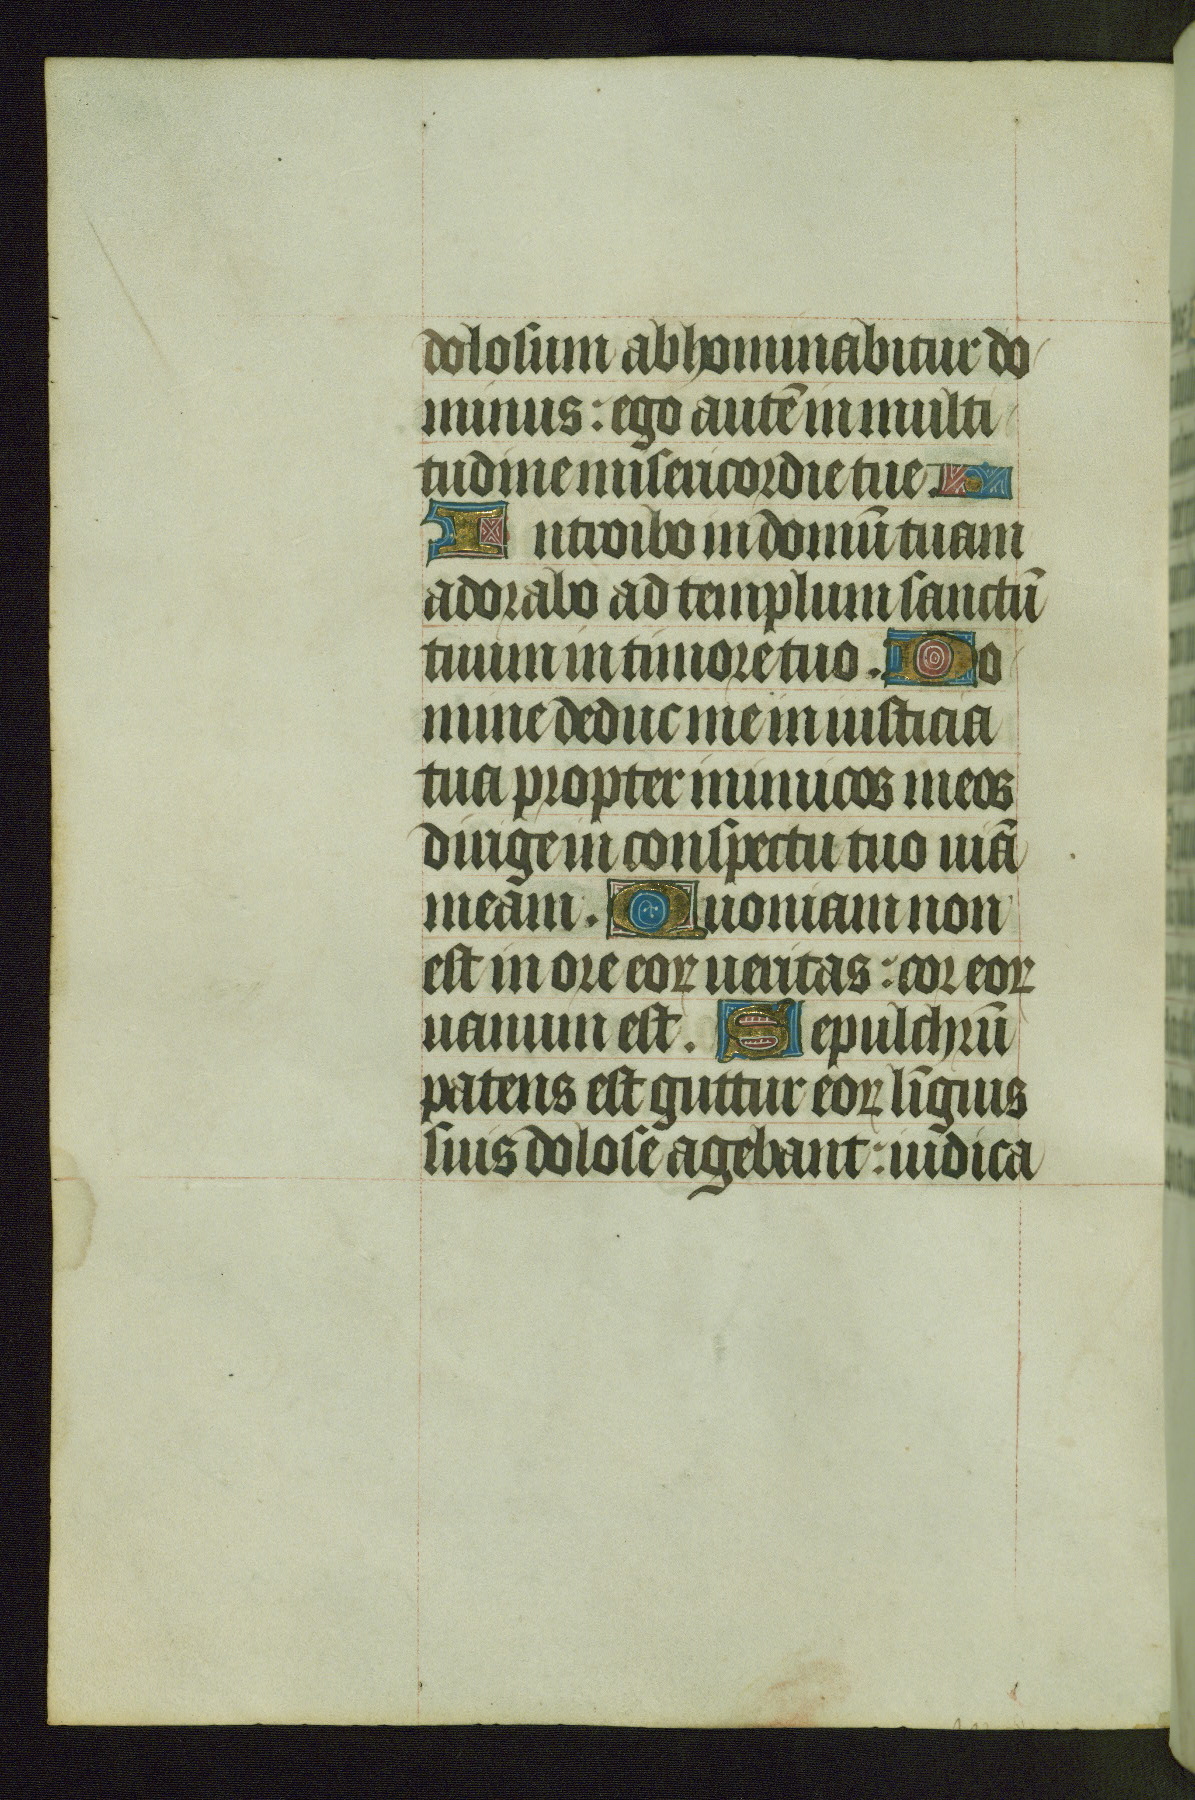 dolosum abhominabitur do
minus : ego autē in multi
tudine misericordie tue .
Introibo in domū tuam
adorabo ad templum sanctū
tuum in timore tuo . Do
mine deduc me in iusticia
tua propter inimicos meos
dirige in conspectu tuo uiā
meam . Quoniam non
est in ore eoꝝ ueritas : cor eoꝝ
uanum est . Sepulchrū
patens est guttur eoꝝ līguis
suis dolose agebant : iudica